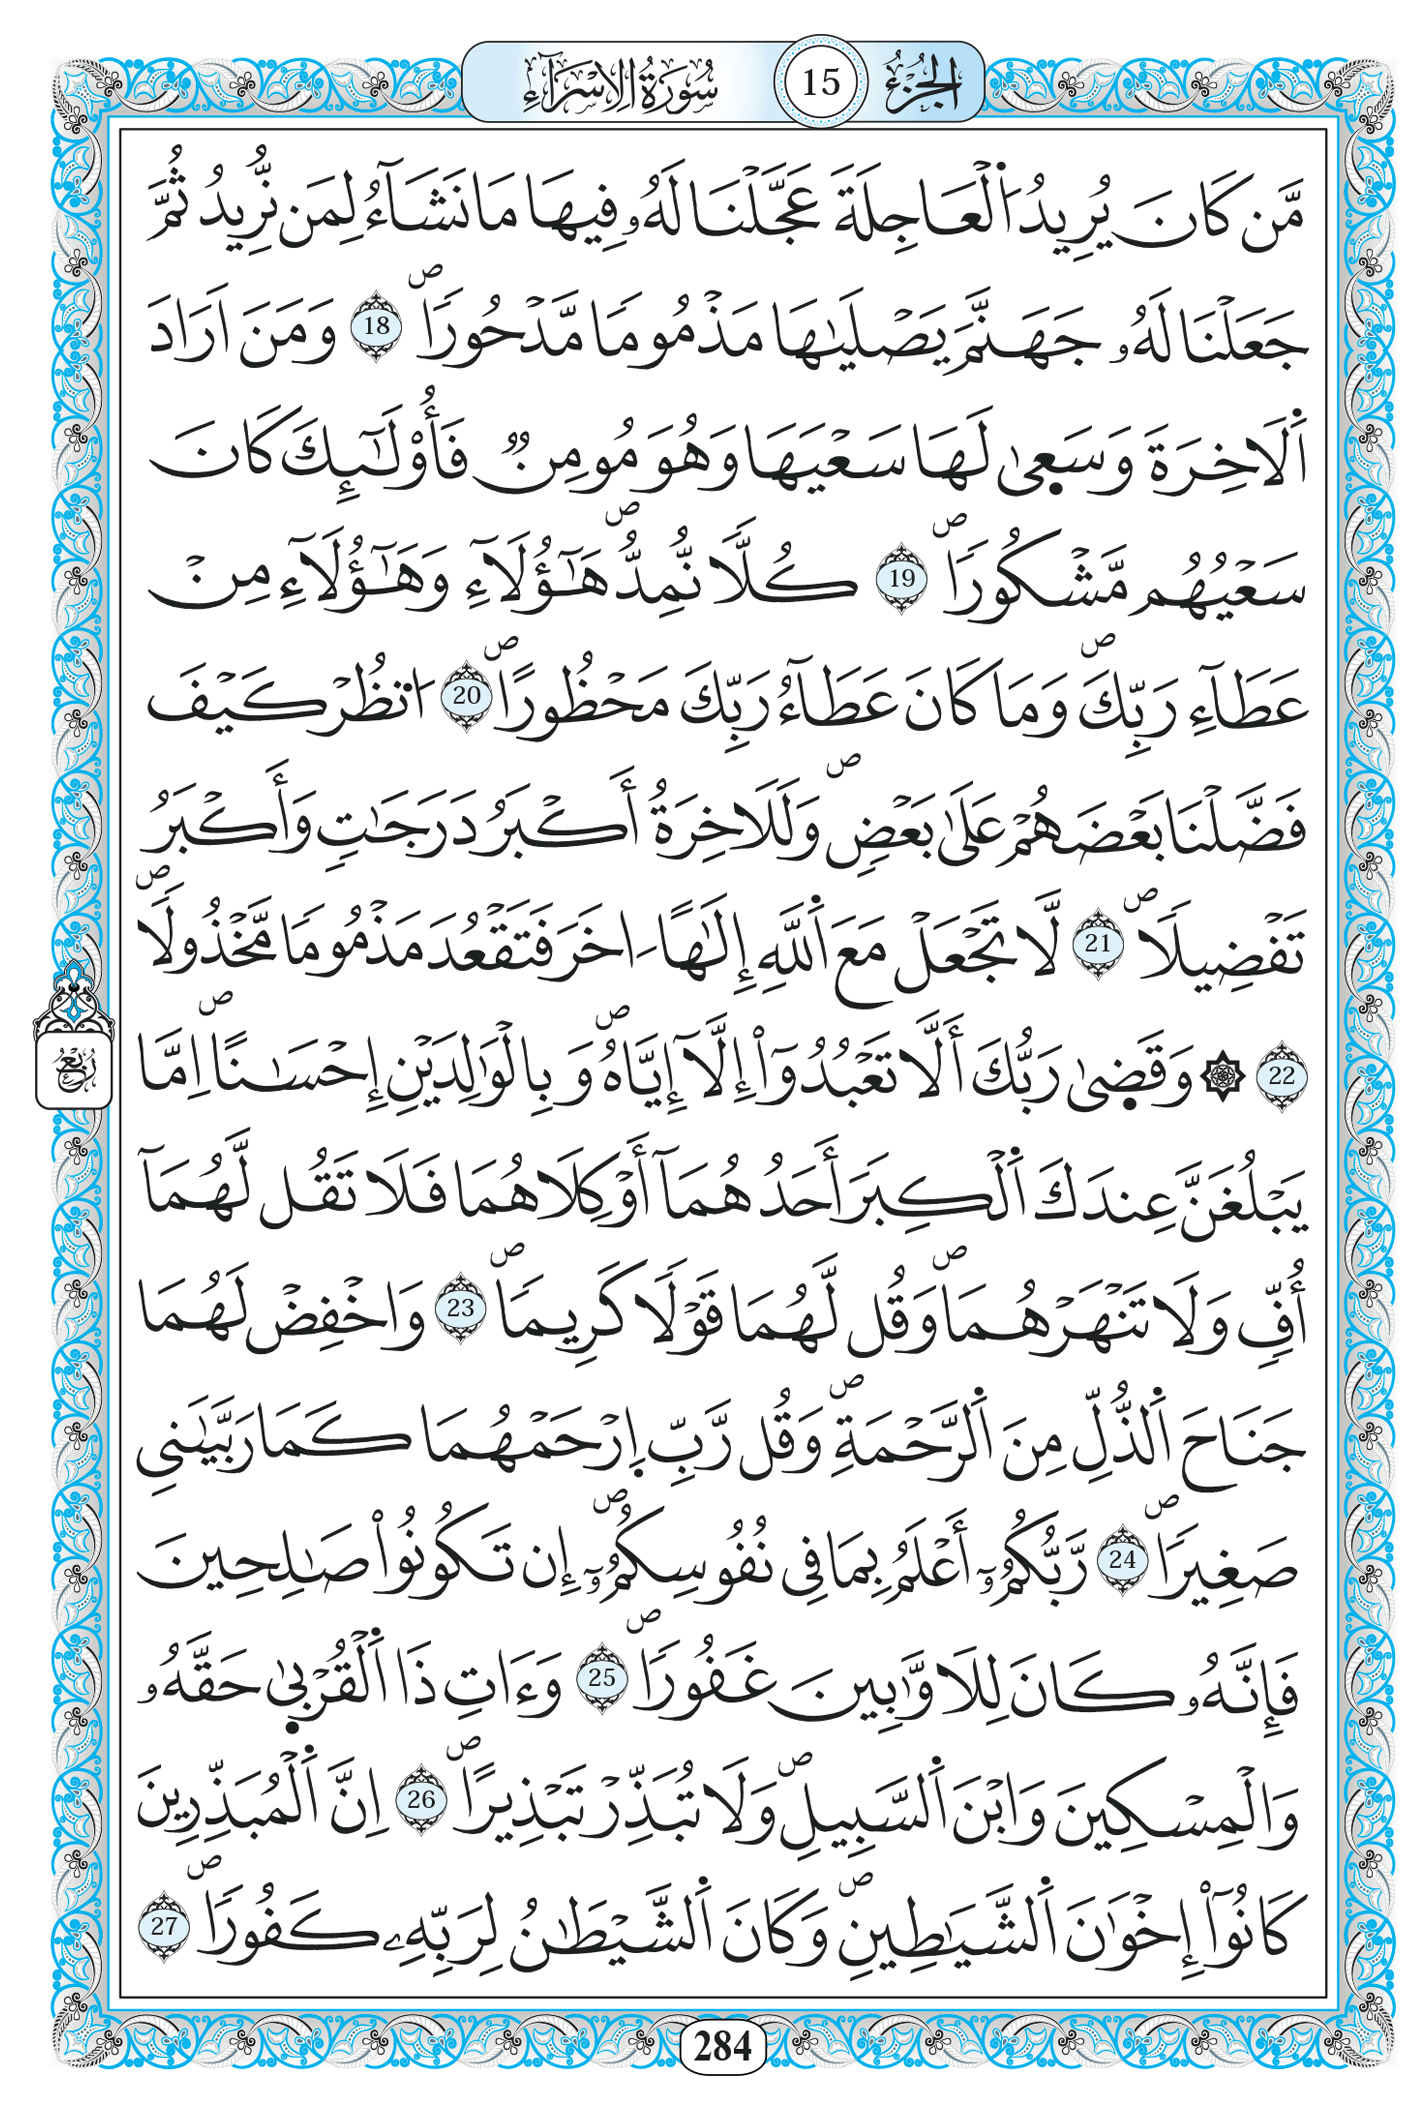 الجزء 15 سورة الإسراء
مَّن كَانَ يُرِيدُ اُ۬لْعَاجِلَةَ عَجَّلْنَا لَهُۥ فِيهَا مَا نَشَآءُ لِمَن نُّرِيدُ ثُمَّ
جَعَلْنَا لَهُۥ جَهَنَّمَ يَصْلَيٰهَا مَذْمُوماٗ مَّدْحُوراٗۖ 18 وَمَنَ اَرَادَ
اَ۬لَاخِرَةَ وَسَع۪يٰ لَهَا سَعْيَهَا وَهُوَ مُومِنٞ فَأُوْلَٰٓئِكَ كَانَ
سَعْيُهُم مَّشْكُوراٗۖ 19 كُلّاٗ نُّمِدُّۖ هَٰٓؤُلَآءِ وَهَٰٓؤُلَآءِ مِنْ
عَطَآءِ رَبِّكَۖ وَمَا كَانَ عَطَآءُ رَبِّكَ مَحْظُوراًۖ 20 اَ۟نظُرْ كَيْفَ
فَضَّلْنَا بَعْضَهُمْ عَلَىٰ بَعْضٖۖ وَلَلَاخِرَةُ أَكْبَرُ دَرَجَٰتٖ وَأَكْبَرُ
تَفْضِيلاٗۖ 21 لَّا تَجْعَلْ مَعَ اَ۬للَّهِ إِلَٰهاً اٰخَرَ فَتَقْعُدَ مَذْمُوماٗ مَّخْذُولاٗۖ
22 ۞ وَقَض۪يٰ رَبُّكَ أَلَّا تَعْبُدُوٓاْ إِلَّآ إِيَّاهُۖ وَبِالْوَٰلِدَيْنِ إِحْسَٰناًۖ اِمَّا
يَبْلُغَنَّ عِندَكَ اَ۬لْكِبَرَ أَحَدُهُمَآ أَوْ كِلَاهُمَا فَلَا تَقُل لَّهُمَآ
أُفّٖ وَلَا تَنْهَرْهُمَاۖ وَقُل لَّهُمَا قَوْلاٗ كَرِيماٗۖ 23 وَاخْفِضْ لَهُمَا
جَنَاحَ اَ۬لذُّلِّ مِنَ اَ۬لرَّحْمَةِۖ وَقُل رَّبِّ اِ۪رْحَمْهُمَا كَمَا رَبَّيَٰنِي
صَغِيراٗۖ 24 رَّبُّكُمُۥٓ أَعْلَمُ بِمَا فِي نُفُوسِكُمُۥٓۖ إِن تَكُونُواْ صَٰلِحِينَ
فَإِنَّهُۥ كَانَ لِلَاوَّٰبِينَ غَفُوراٗۖ 25 وَءَاتِ ذَا اَ۬لْقُرْب۪يٰ حَقَّهُۥ
وَالْمِسْكِينَ وَابْنَ اَ۬لسَّبِيلِۖ وَلَا تُبَذِّرْ تَبْذِيراًۖ 26 اِنَّ اَ۬لْمُبَذِّرِينَ
كَانُوٓاْ إِخْوَٰنَ اَ۬لشَّيَٰطِينِۖ وَكَانَ اَ۬لشَّيْطَٰنُ لِرَبِّهِۦ كَفُوراٗۖ 27
رُبُعُ
284